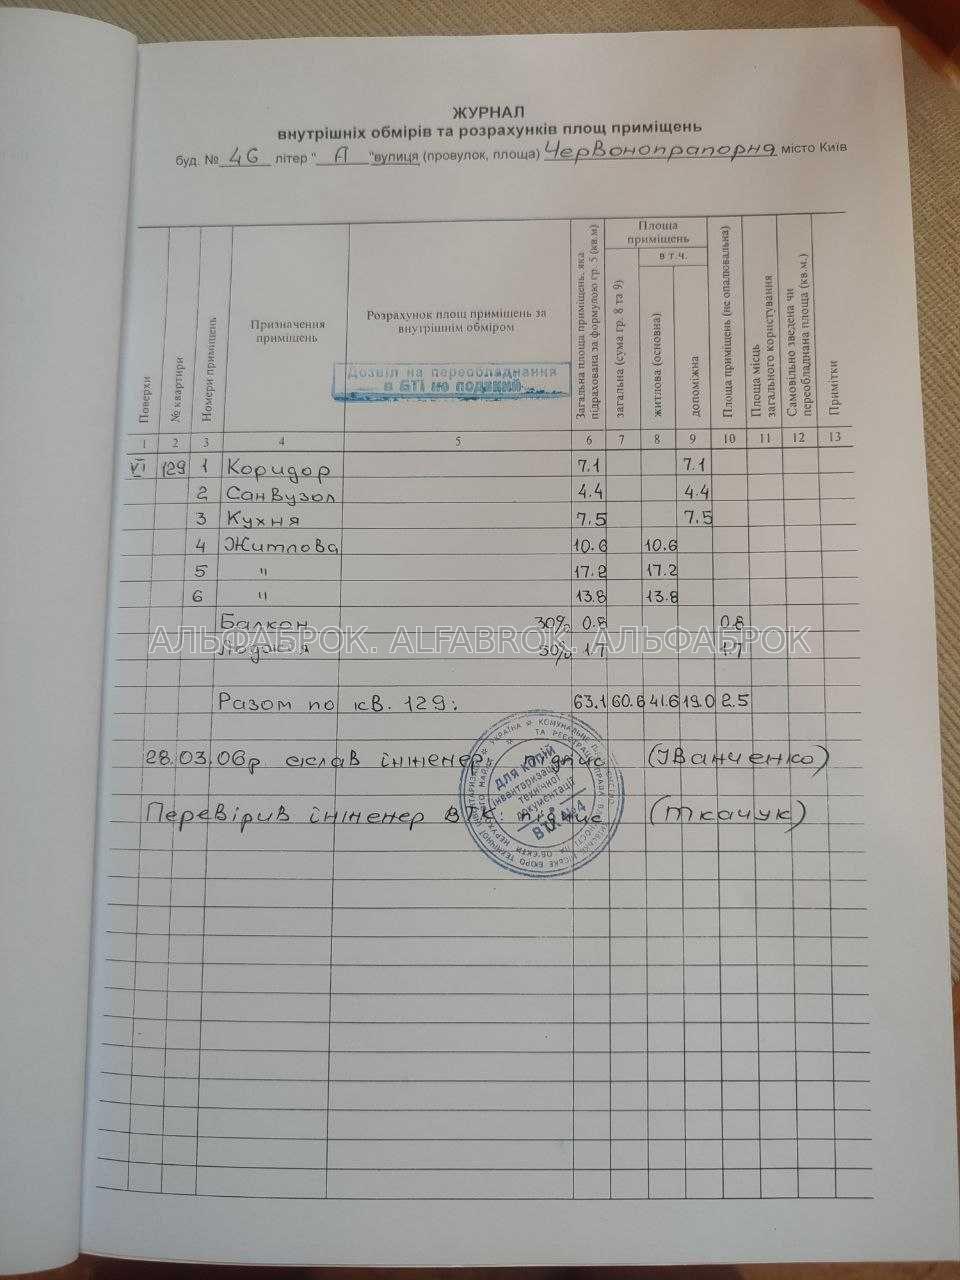 ЖУРНАЛ
внутрішніх обмірів та розрахунків площ приміщень
буд. № 46 літер "А" вулиця (провулок, площа) Червонопрапорна місто Київ
Поверхи
№ квартири
Номери приміщень
Призначення приміщень
Розрахунок площ приміщень за внутрішнім обміром
Загальна площа приміщень, яка підрахована за формулою гр. 5 (кв.м)
Площа приміщень
загальна (сума гр. 8 та 9)
в т.ч.
житлова (основна)
допоміжна
Площа приміщень (не опалювальна)
Площа місць загального користування
Самовільно зведена чи переобладнана площа (кв.м.)
Примітки
Дозвіл на переобладнання
в БТІ не поданий
1 2 3 4 5 6 7 8 9 10 11 12 13
VI 129 1 Коридор 7.1 7.1
2 Санвузол 4.4 4.4
3 Кухня 7.5 7.5
4 Житлова 10.6 10.6
5 " 17.2 17.2
6 " 13.8 13.8
Балкон 30% 0.8 0.8
АЛЬФАБРОК. ALFABROK. АЛЬФАБРОК
Лоджія 50% 1.7 1.7
Разом по кв. 129: 63.1 60.6 41.6 19.0 2.5
28.03.06р. склав інженер підпис (Іванченко)
Перевірив інженер ВТК: підпис (Ткачук)
Для копій
інвентаризаційної
технічної
документації
ВТК №4